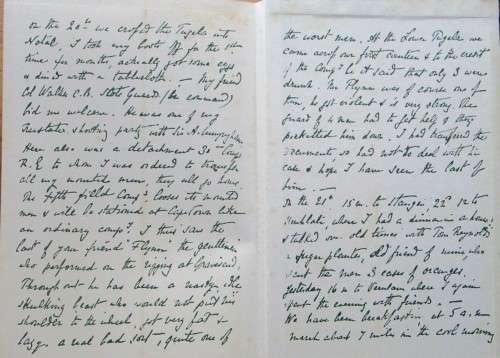 on the 20th we crossed the Tugela into
Natal, I took my boots off for the first
time for months, actually got some eggs
& dined with a tablecloth. — My friend
Col Walker C.B. Scots Guards (in command)
bid me welcome. He was one of my
shooting party with
Here also was a detachment 30th Compy
R.E. to whom I was ordered to transfer
all my mounted men, they all go home.
The fifth field Compy looses its mounted
men & will be stationed at Capetown like
an ordinary compy. I thus saw the
last of your friend Flynn the gentleman
who performed on the rigging at Gravesend.
Throughout he has been a
skulking beast who would not put his
shoulder to the wheel, got very fat &
lazy, a real bad sort, quite one of
the worst men. At the Lower Tugela we
came across our first canteen & to the credit
of the Compy be it said that only 3 were
drunk. Mr Flynn was of course one of
them, he got violent & is very strong. The
guard of 4 men had to get help & they
him down. I had transferred the
documents, so had not to deal with his
case & hope I have seen the last of
him. —
On the 21st 15 m. to Stanger, 22nd 12 to
where I had a dinner in a house
& talked over old times with Tom Reynolds
a sugar planter, old friend of mine, who
sent the men 3 cases of oranges.
Yesterday 16 m to Verulam where I again
spent the evening with friends. —
We have been breakfasting at 5 a.m.
march about 7 miles in the cool morning